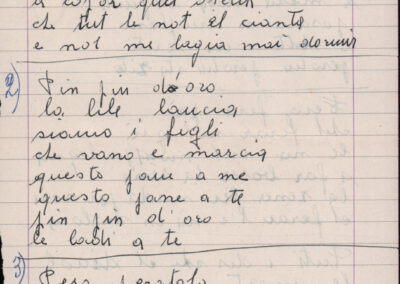 che tut le not el ciante
e no'l me lagia mai dormir
2) Pin pin d'oro
la lile lancia
siamo i figli
che vano e marcia
questo pane a me
questo pane a te
pin pin d'oro
le ladi a te
3)